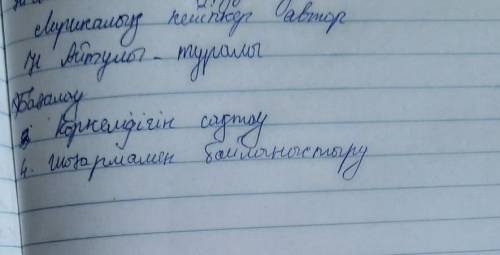 Лирикалық кейіпкер автор
Ақ Айтулы - туралы
Бағалау
3 Көркемдігін сақтау
4. шығармамен байланыстыру